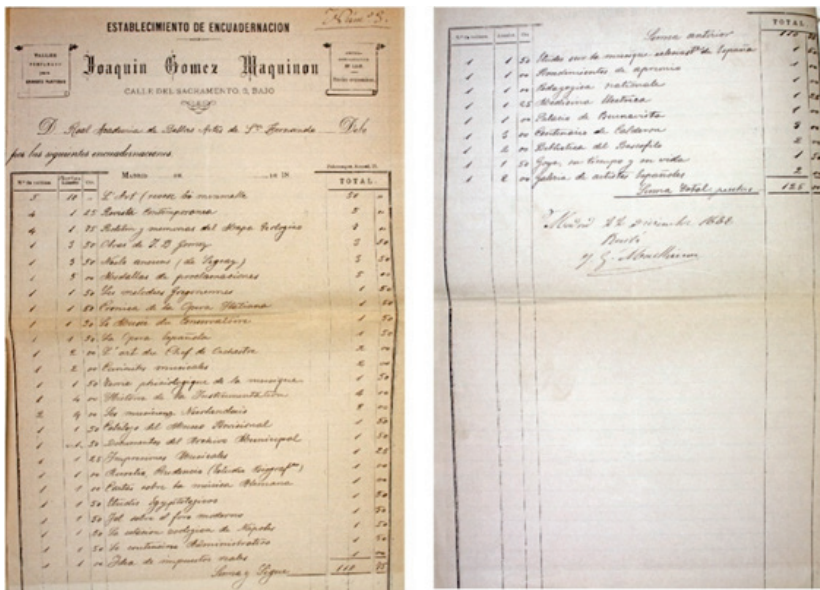 Núm 23.
ESTABLECIMIENTO DE ENCUADERNACION
TALLER
Joaquin Gomez Maquinon
CALLE DEL SACRAMENTO, 3, BAJO
D. Real Academia de Bellas Artes de Sn. Fernando Debe
por las siguientes encuadernaciones.
MADRID DE DE 18
TOTAL.
5 10 L'Art 50
4 1 25 Revista Contemporanea 5
4 1 75 Boletin y memorias del Mapa Geologico
1 3 50 Obras de J. D. Gomez 3 50
1 3 50 3 50
1 5 Medallas de proclamaciones 5
1 1 50 Les melodies Gregoriennes 1 50
1 1 50 Cronica de la Opera Italiana 1 50
1 1 50 Le Musée du Conservatoire 1 50
1 1 50 La Opera Española 1 50
1 2 L'art du Chef de Orchestre 2
1 2 musicales 2
1 1 50 phisiologique de la musique 1 50
1 4 Historia de la Instrumentation 4
2 4 Les musiciens Neerlandais 8
1 1 50 Catalogo del Museo Provincial 1 50
1 1 50 Documentos del Archivo Municipal 1 50
1 1 25 Impresiones Musicales 1 25
1 1 Prudencio (Estudio Biografco)
1 1 Cartas sobre la música Alemana 1
1 1 50 Etudes Egyptologiques 1 50
1 1 50 sobre el foro moderno 1 50
1 1 50 La estacion zoologica de Napoles 1 50
1 1 50 Lo contencioso Administrativo 1 50
1 1 Idea de impuestos reales 1
Suma y Sigue 110 75
TOTAL
Suma anterior 110 75
1 1 50 Etudes sur la musique de España 1 50
1 1 Rendimientos de apremio 1
1 1 Pedagogica nationale 1
1 1 25 Medicina Electrica 1 25
1 1 Palacio de Buenavista 1
1 3 Centenario de Calderon 3
1 2 Biblioteca del Bascofilo 2
1 1 50 Goya, su tiempo y su vida 1 50
1 2 Galeria de artistas Españoles 2
Suma total pesetas 125
Madrid Diciembre